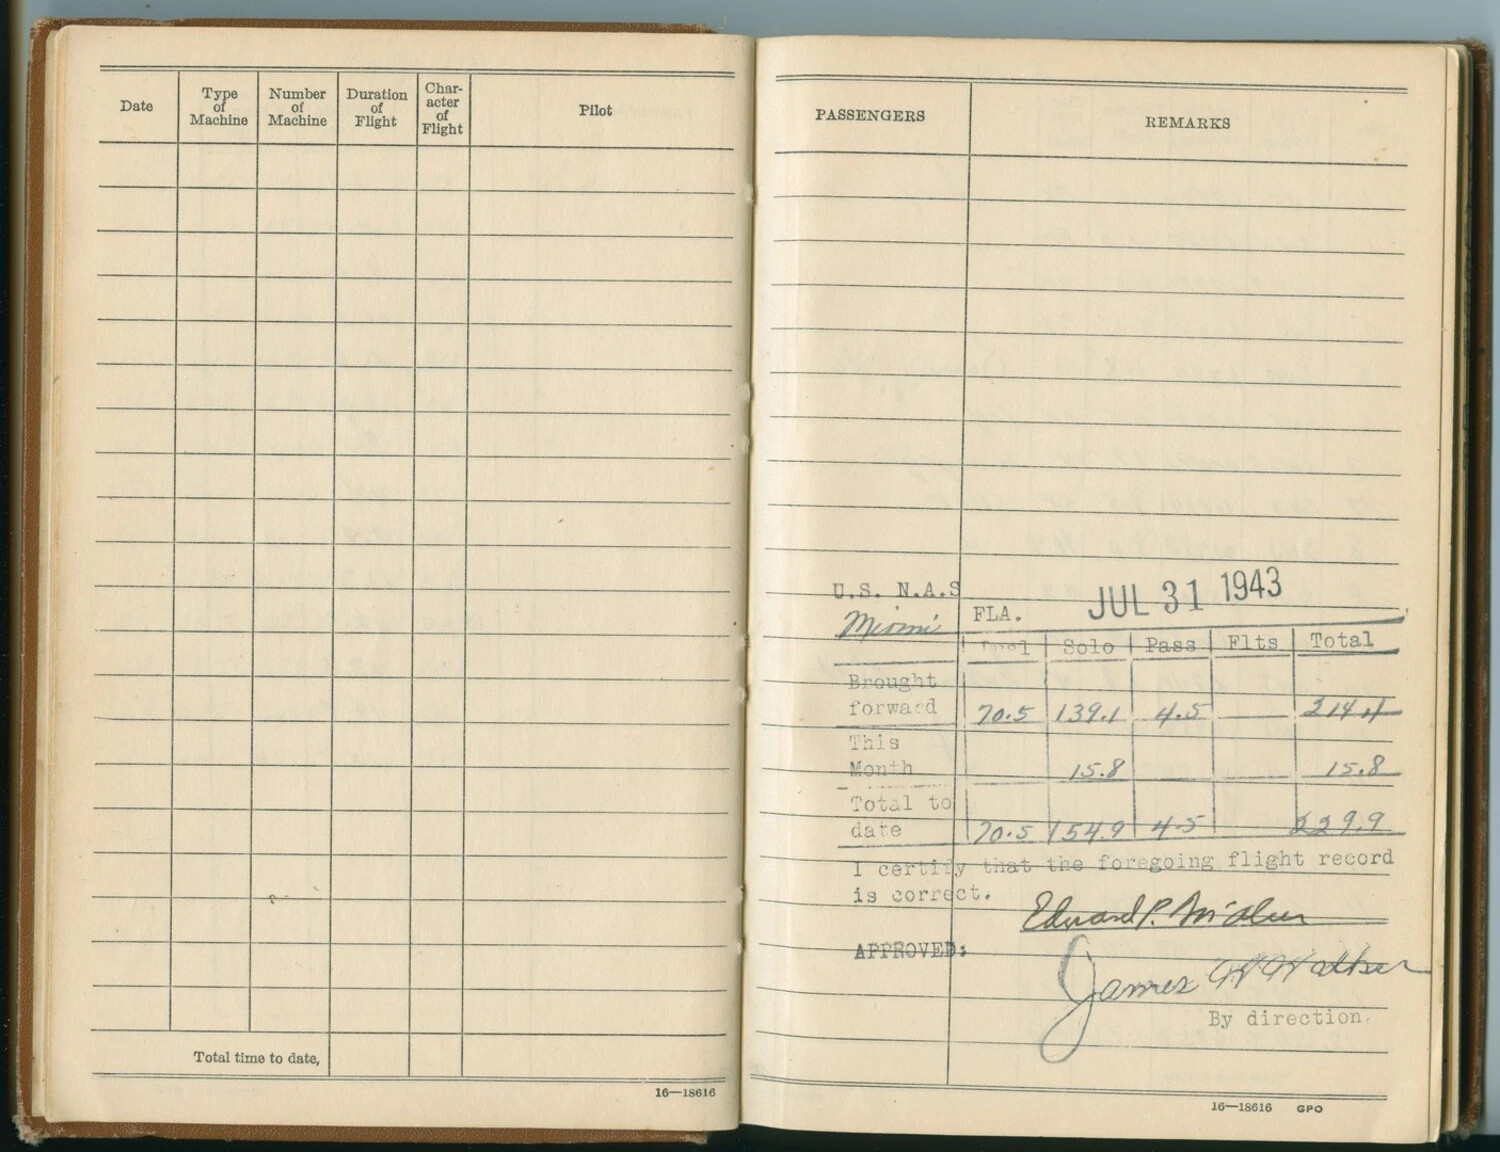 Date
Type of Machine
Number of Machine
Duration of Flight
Char-acter of Flight
Pilot
Total time to date,
16—18616
PASSENGERS
REMARKS
U.S. N.A.S
JUL 31 1943
Miami FLA.
Solo Pass Flts Total
Brought
forward 70.5 139.1 4.5 214.1
This
Month 15.8 15.8
Total to
date 70.5 154.9 4.5 229.9
I certify that the foregoing flight record
is correct.
Edward P.
APPROVED:
James W Walker
By direction.
16—18616 GPO